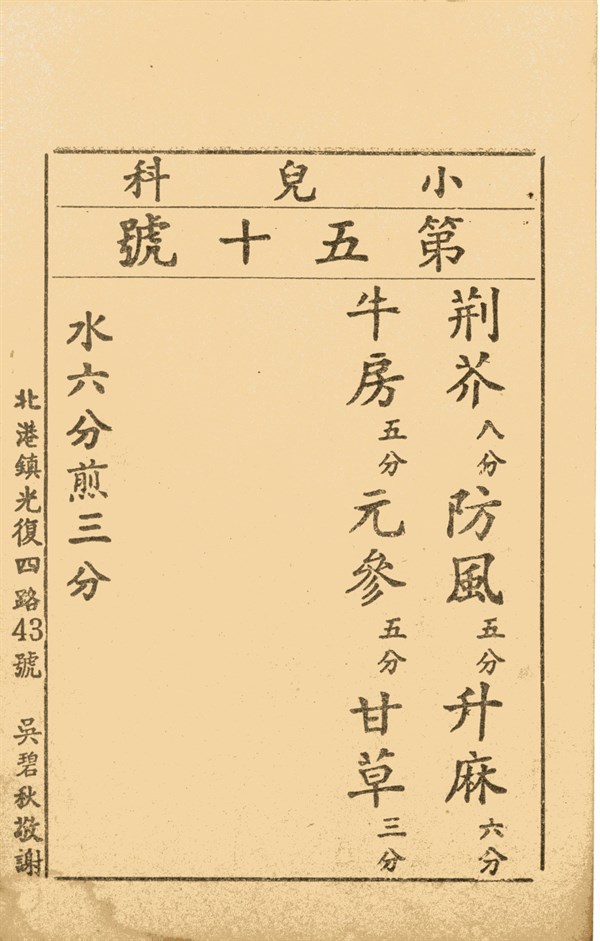 小兒科
第五十號
荆芥八分防風五分升麻六分
牛房五分元參五分甘草三分
水六分煎三分
北港鎮光復四路43號 吳碧秋敬謝